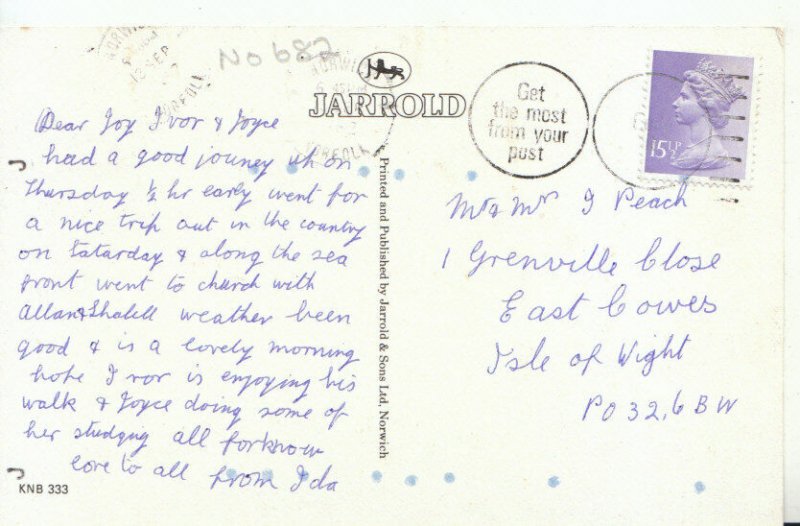 No 682
JARROLD
Get
the most
from your
post
15½P
NORFOLK
Dear Joy Ivor & Joyce
had a good jouney uh on
Thursday ½ hr early went for
a nice trip out in the country
on Satarday & along the sea
front went to church with
Allan & weather been
good & is a lovely morning
hope Ivor is enjoying his
walk & Joyce doing some of
her studyng all for know
love to all from Ida
KNB 333
Printed and Published by Jarrold & Sons Ltd, Norwich
Mr & Mrs I Peach
1 Grenville Close
East Cowes
Isle of Wight
PO32,6BW